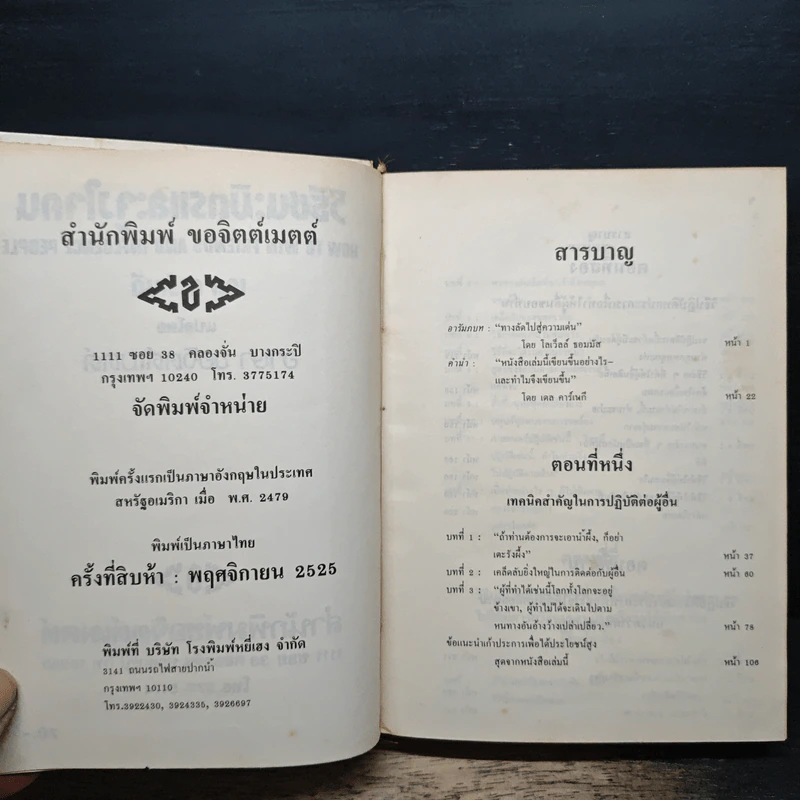 สำนักพิมพ์ ขอจิตต์เมตต์
1111 ซอย 38 คลองจั่น บางกะปิ
กรุงเทพฯ 10240 โทร. 3775174
จัดพิมพ์จำหน่าย
พิมพ์ครั้งแรกเป็นภาษาอังกฤษในประเทศ
สหรัฐอเมริกา เมื่อ พ.ศ. 2479
พิมพ์เป็นภาษาไทย
ครั้งที่สิบห้า : พฤศจิกายน 2525
พิมพ์ที่ บริษัท โรงพิมพ์หยี่เฮง จำกัด
3141 ถนนรถไฟสายปากน้ำ
กรุงเทพฯ 10110
โทร.3922430, 3924335, 3926697
สารบาญ
อารัมภบท : "ทางลัดไปสู่ความเด่น"
โดย โลเวิลล์ ธอมมัส หน้า 1
คำนำ : "หนังสือเล่มนี้เขียนขึ้นอย่างไร-
และทำไมจึงเขียนขึ้น"
โดย เดล คาร์เนกี หน้า 22
ตอนที่หนึ่ง
เทคนิคสำคัญในการปฏิบัติต่อผู้อื่น
บทที่ 1 : "ถ้าท่านต้องการจะเอาน้ำผึ้ง, ก็อย่า
เตะรังผึ้ง" หน้า 37
บทที่ 2 : เคล็ดลับยิ่งใหญ่ในการติดต่อกับผู้อื่น หน้า 60
บทที่ 3 : "ผู้ที่ทำได้เช่นนี้โลกทั้งโลกจะอยู่
ข้างเขา, ผู้ทำไม่ได้จะเดินไปตาม
หนทางอันอ้างว้างเปล่าเปลี่ยว." หน้า 78
ข้อแนะนำเก้าประการเพื่อได้ประโยชน์สูง
สุดจากหนังสือเล่มนี้ หน้า 106